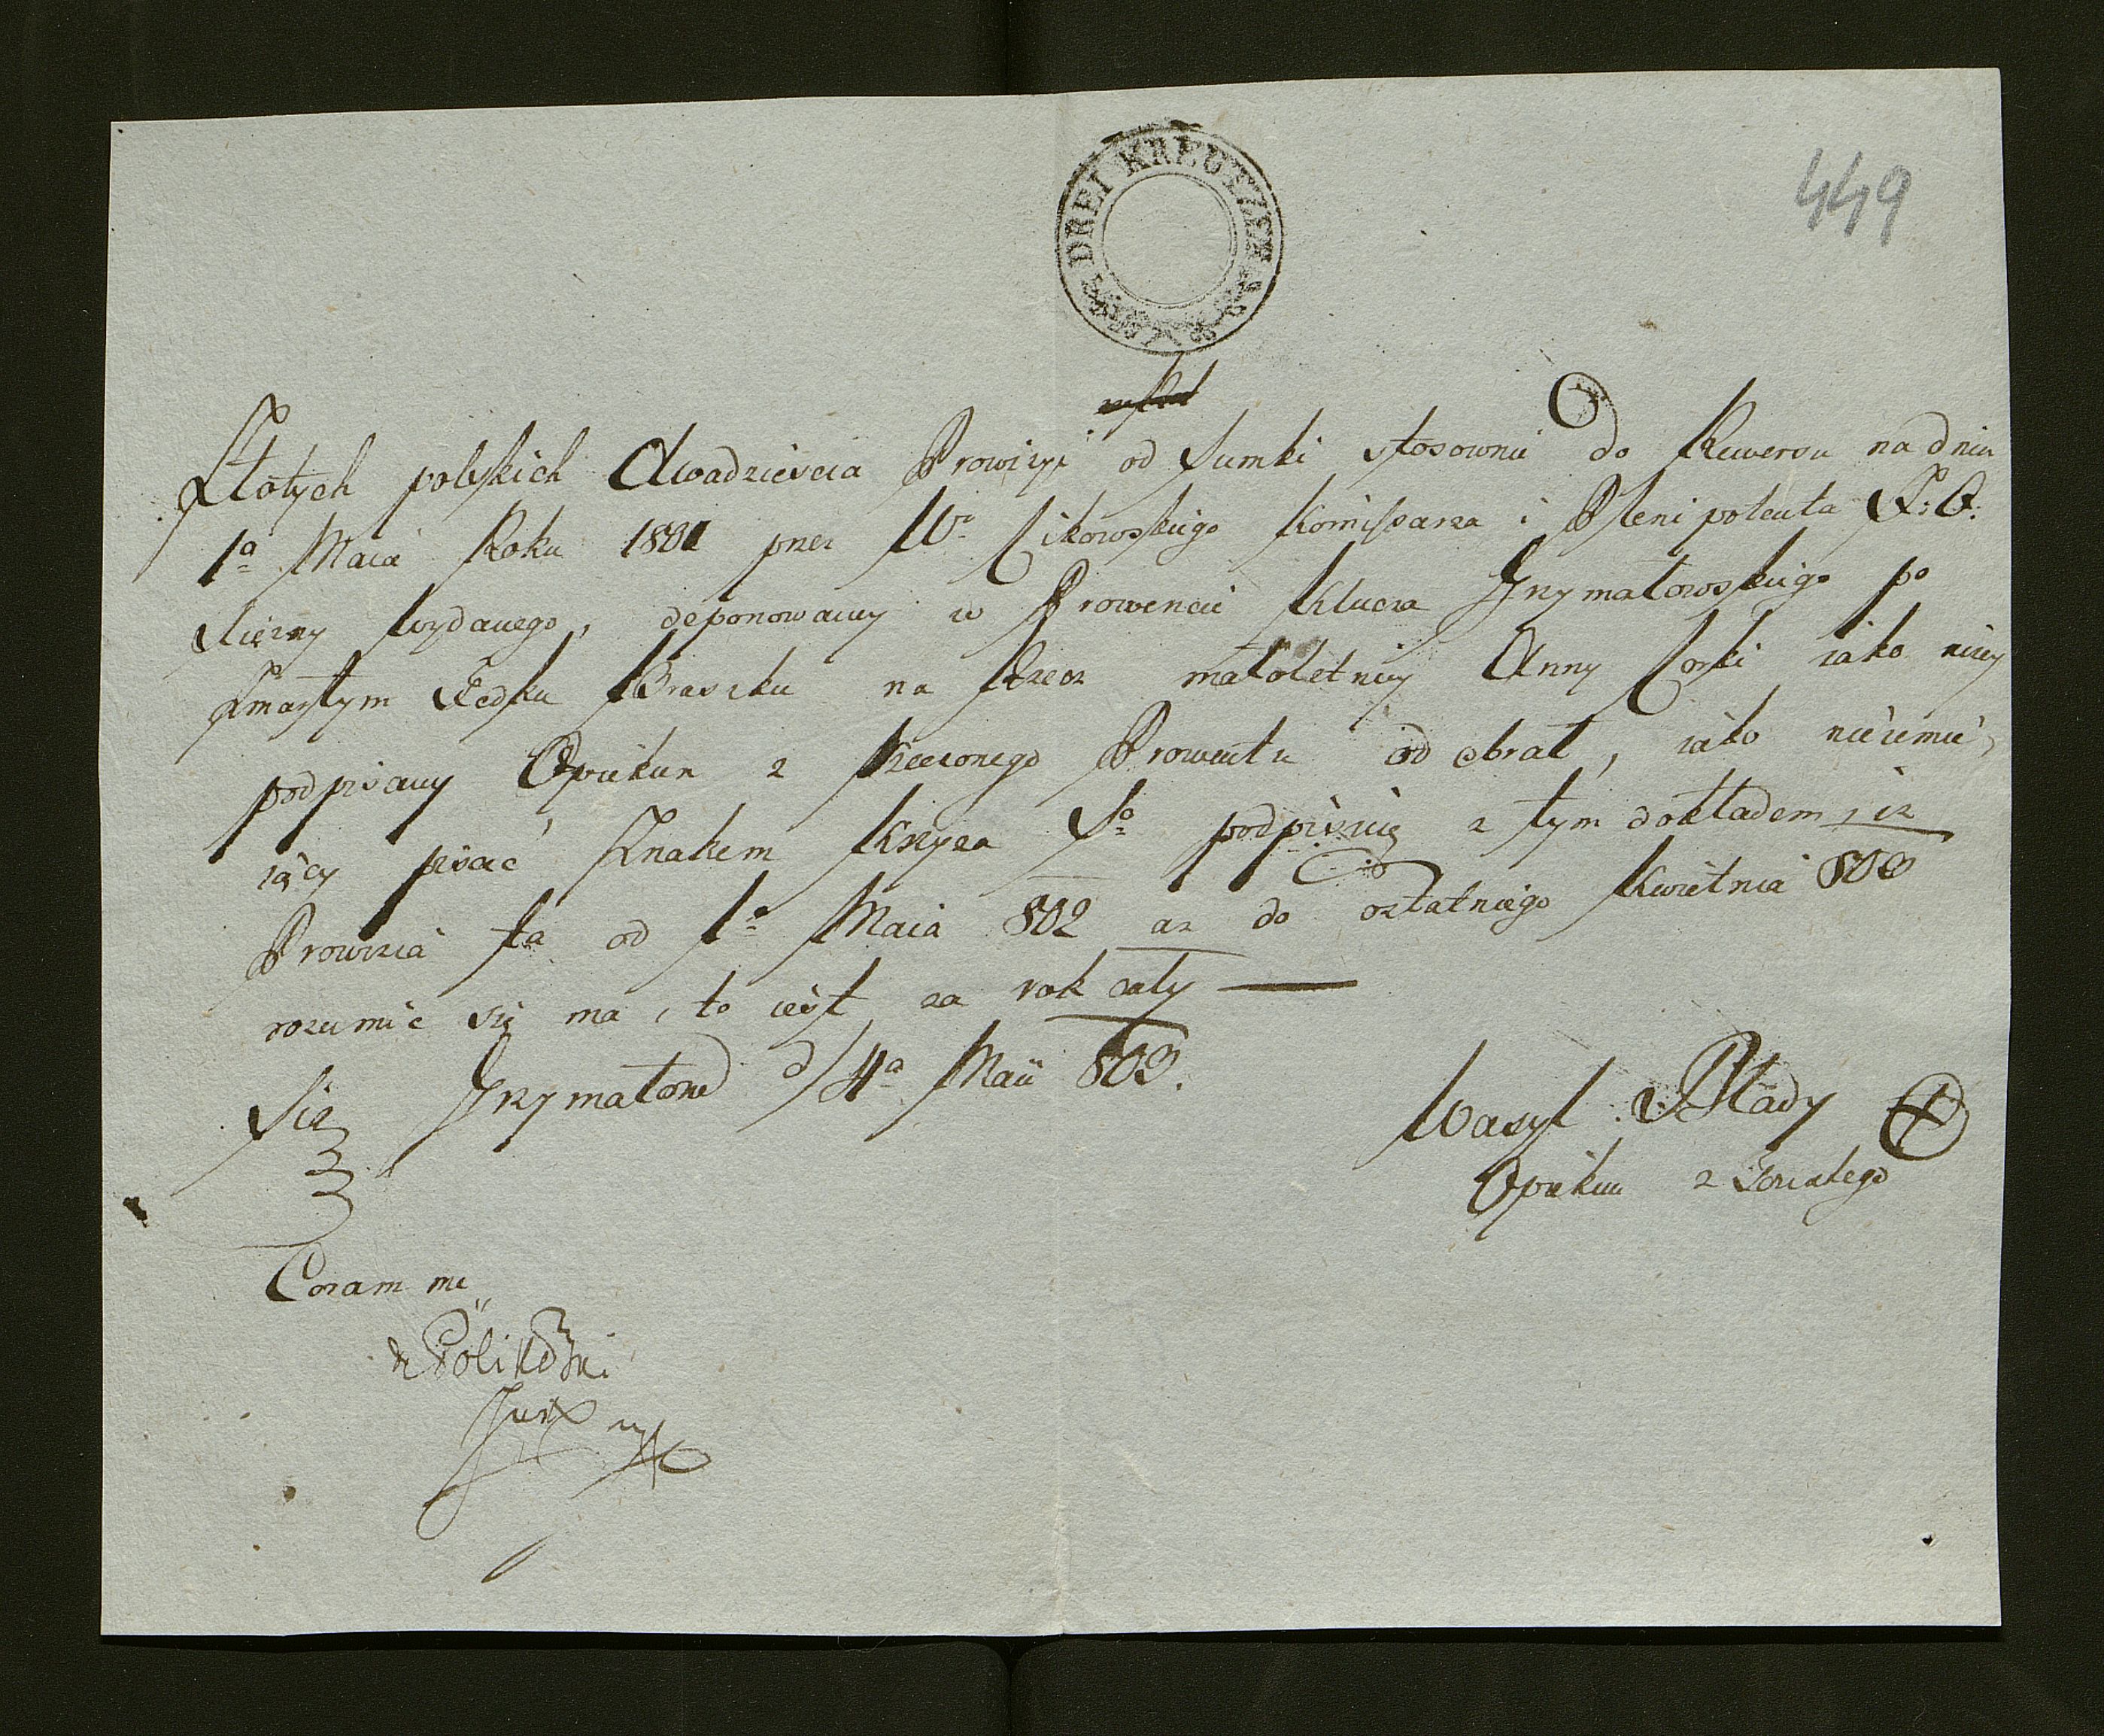 449
DREI KREUTZER
Złotych polskich Dwadzieścia Prowizyi od Summki stosownie do Rewersu na dniu
1º Maia Roku 1801 przez W. Cikowskiego Komissarza i Plenipotenta X: O:
Xiężny wydanego, deponowaney w Prowencie Klucza Grzymałowskiego po
Zmarłym Fedku Braszku na Rzecz małoletniey Anny Corki iako niżey
podpisany Opiekun z Rzeczonego Prowentu odebrał, iako nieumie,
iący pisać Znakiem Krzyża Sº podpisuię z tym dokładem, iż
Prowizia ta od 1º Maia 802 aż do ostatniego Kwietnia 803
rozumić się ma, to iest za rok cały
Sig Grzymałow d 4ª Maii 803.
Wasyl Hłady
Opiekun z
Coram me